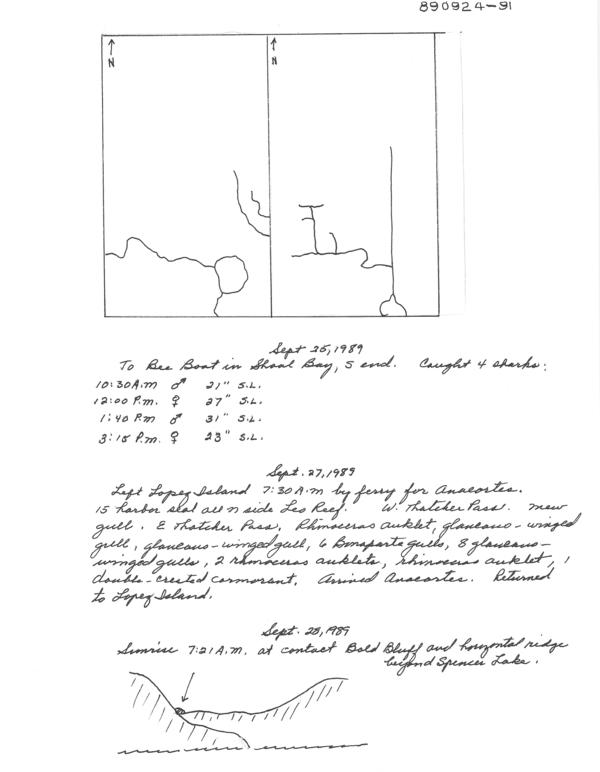 890924-91
N
N
Sept 25, 1989
To Bee Boat in Shoal Bay, S end. Caught 4 sharks:
10:30 A.m ♂ 21" S.L.
12:00 P.m. ♀ 27" S.L.
1:40 P.m ♂ 31" S.L.
3:15 P.m. ♀ 23" S.L.
Sept. 27, 1989
Left Lopez Island 7:30 A.m by ferry for Anacortes.
15 harbor seal all n side Leo Reef. W. Thatcher Pass. mew
gull. E Thatcher Pass, Rhinoceros auklet, glaucous-winged
gull, glaucous-winged gull, 6 Bonaparte gulls, 8 glaucous-
winged gulls, 2 rhinoceros auklets, rhinoceros auklet, 1
double-crested cormorant. Arrived Anacortes. Returned
to Lopez Island.
Sept. 28, 1989
Sunrise 7:21 A.m. at contact Bald Bluff and horizontal ridge
beyond Spencer Lake.